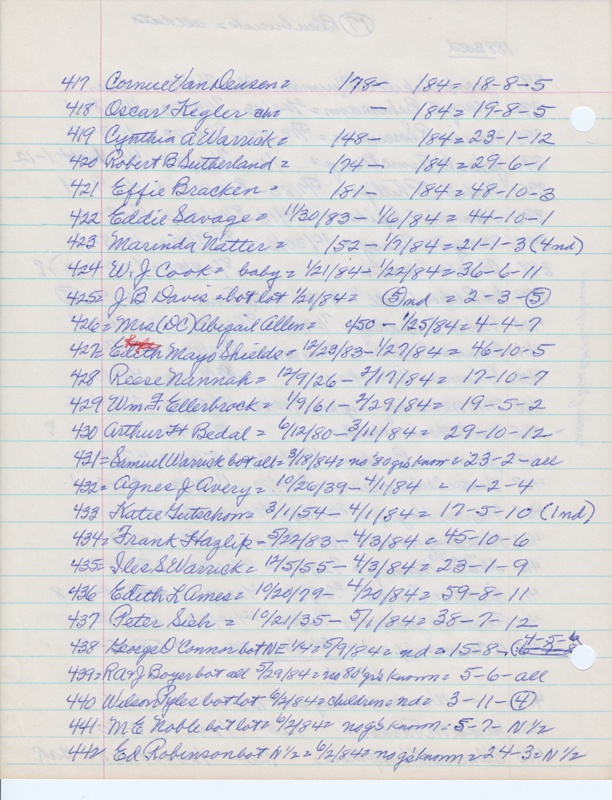 417 Cornue Van Deusen = 178- 184 = 18-8-5
418 Oscar Kegler - 184 = 19-8-5
419 Cynthia A Warrick = 148- 184 = 23-1-12
420 Robert B Sutherland = 174- 184 = 29-6-1
421 Effie Bracken = 181- 184 = 48-10-3
422 Eddie Savage = 11/30/83 - 1/6/84 = 44-10-1
423 Marinda Natter = 152 - 1/7/84 = 21-1-3 (4nd)
424 W. J. Cook = baby = 1/21/84 - 1/22/84 = 36-6-11
425 = J B Davis = bot lot 1/21/84 = (5) nd = 2-3-(5)
426 = Mrs (DC) Abigail Allen = c/50 - 1/25/84 = 4-4-7
427 = Edith Mayo Shields = 12/23/83 - 1/27/84 = 46-10-5
428 Reese Nannah = 12/9/26 - 2/17/84 = 17-10-7
429 Wm. F. Ellerbrock = 1/9/61 - 2/29/84 = 19-5-2
430 Arthur H Bedal = 6/12/80 - 3/11/84 = 29-10-12
431 = Samuel Warrick bot all = 3/18/84 = no 80 g's known = 23-2-all
432 = Agnes J Avery = 10/26/39 - 4/1/84 = 1-2-4
433 Katie Gutschom = 3/1/54 - 4/1/84 = 17-5-10 (1nd)
434 = Frank Hazlip = 5/22/83 - 4/3/84 = 45-10-6
435 = Iles S Warrick = 12/5/55 - 4/3/84 = 23-1-9
436 Edith L Ames = 10/20/79 - 4/20/84 = 59-8-11
437 Peter Sieh = 10/21/35 - 5/1/84 = 38-7-12
438 George O'Connor bot NE 1/4 = 5/9/84 = nd = 15-8- 4-5-6
439 = R A & J Boyer bot all 5/29/84 = no 80 g's known = 5-6-all
440 Wilson Pyles bot lot 6/2/84 = children = nd = 3-11-(4)
441 - M E Noble bot lot = 6/2/84 = no g's known = 5-7- N 1/2
442 Ed Robinson bot N 1/2 = 6/2/84 = no g's known = 24-3 = N 1/2